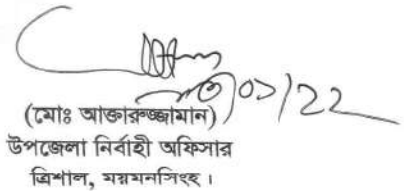 ০১/২২
(মোঃ আক্তারুজ্জামান)
উপজেলা নির্বাহী অফিসার
ত্রিশাল, ময়মনসিংহ।